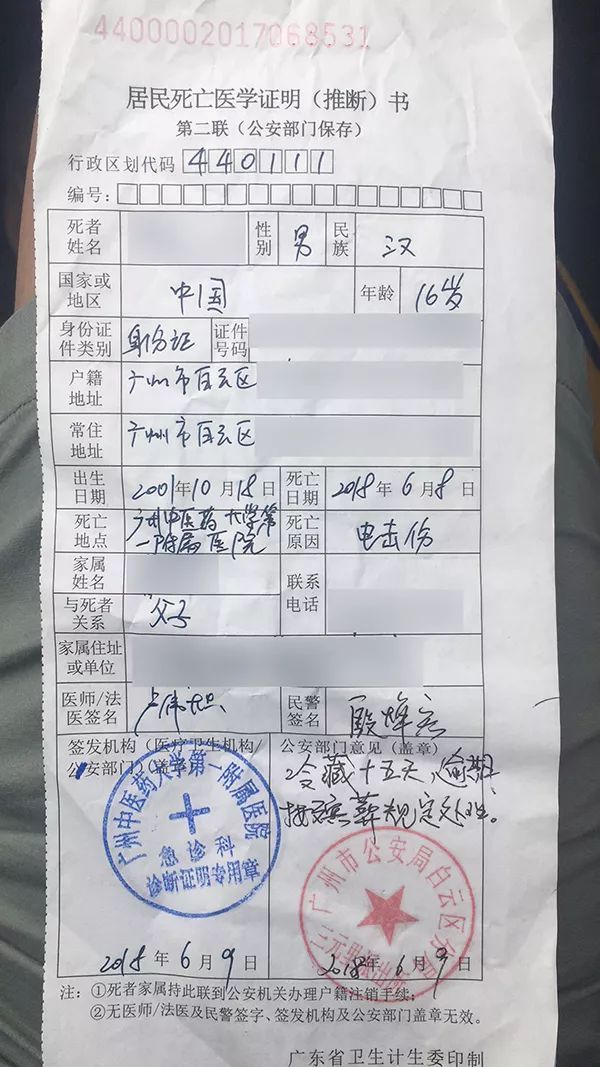 4400002017068531
居民死亡医学证明（推断）书
第二联（公安部门保存）
行政区划代码 440111
编号：
死者姓名 性别 男 民族 汉
国家或地区 中国 年龄 16岁
身份证件类别 身份证 证件号码
户籍地址 广州市白云区
常住地址 广州市白云区
出生日期 2001年10月18日 死亡日期 2018年6月8日
死亡地点 广州中医药大学第一附属医院 死亡原因 电击伤
家属姓名 联系电话
与死者关系 父子
家属住址或单位
医师/法医签名 民警签名
签发机构（医疗卫生机构/公安部门）（盖章） 公安部门意见（盖章）
冷藏十五天，逾期
按殡葬规定处理。
广州中医药大学第一附属医院
急诊科
诊断证明专用章
广州市公安局白云区分局
三元里派出所
2018年6月9日 2018年6月9日
注：①死者家属持此联到公安机关办理户籍注销手续；
②无医师/法医及民警签字、签发机构及公安部门盖章无效。
广东省卫生计生委印制